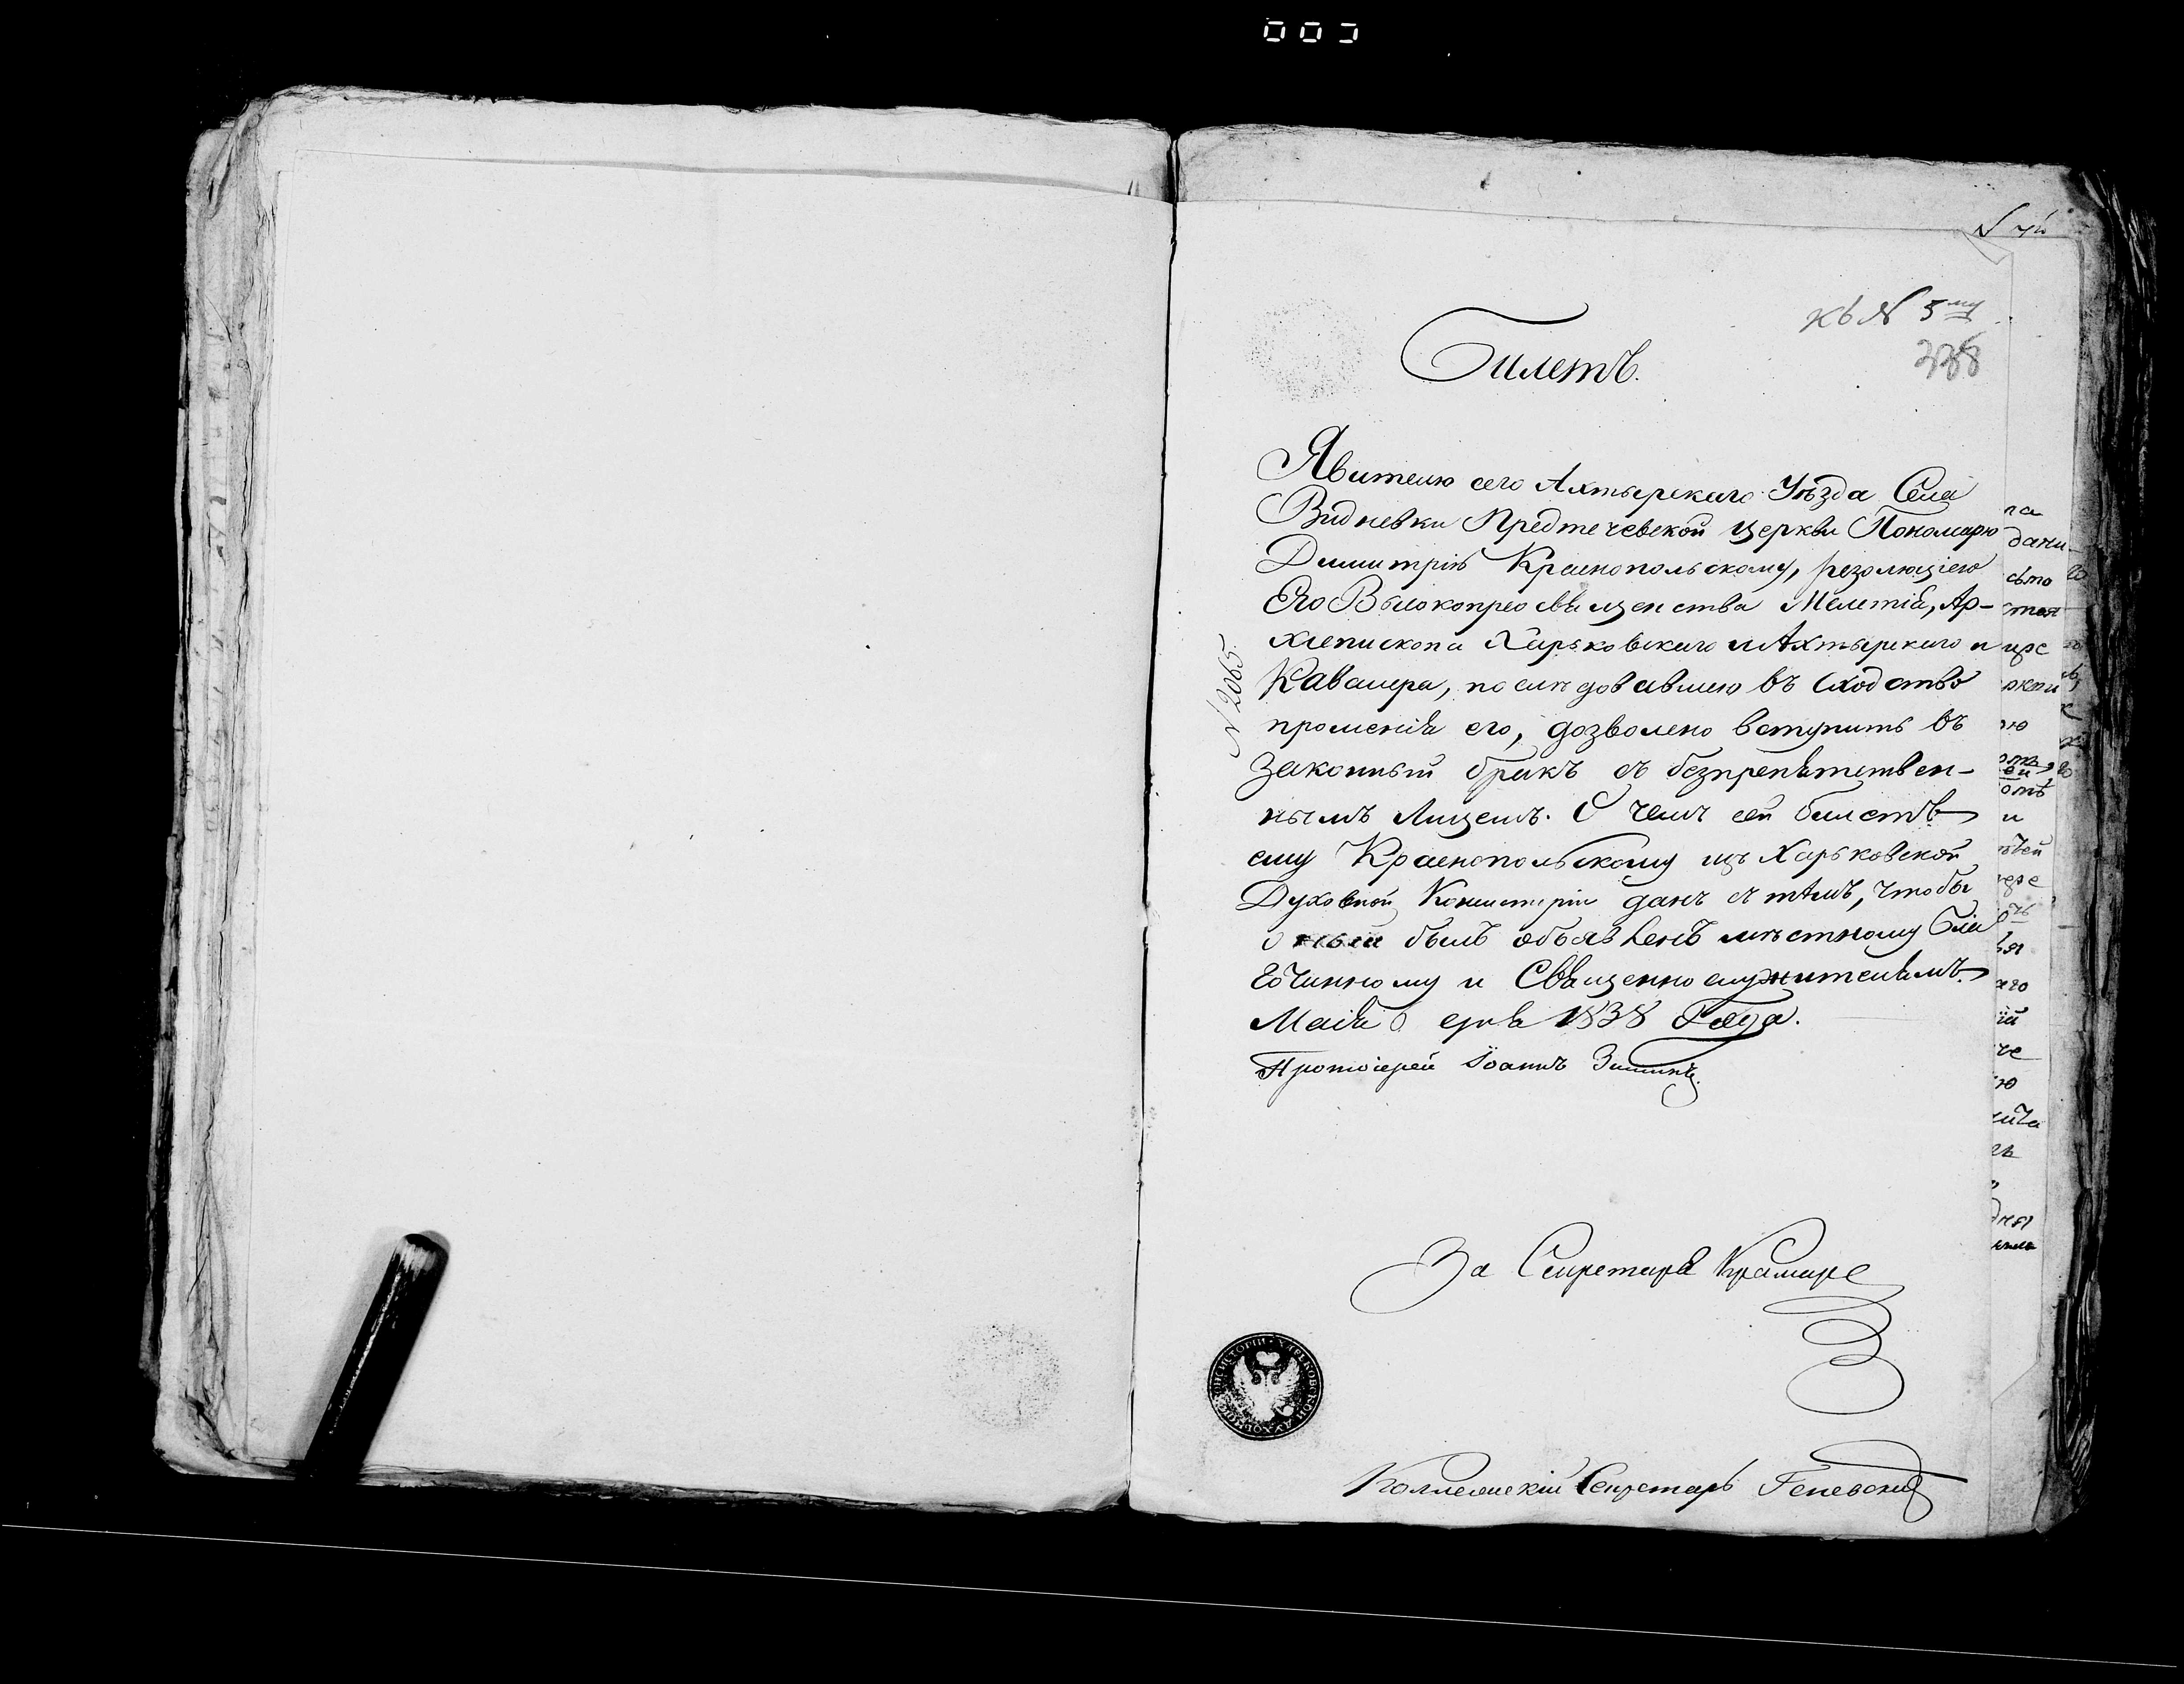 къ № 5му
338
Билетъ.
Явителю сего Ахтырскаго Уѣзда Села
Видневки Предтечевской Церкви Пономарю
Димитрію Краснопольскому, резолюціею
Его Высокопреосвященства Мелетія, Ар-
хіепископа Харьковскаго и Ахтырскаго и
Кавалера, послѣдовавшею въ сходство
прошенія его, дозволено вступить въ
законный бракъ съ безпрепятствен-
нымъ Лицемъ. О чемъ сей билетъ
ему Краснопольскому изъ Харьковской
Духовной Консисторіи данъ съ тѣмъ, чтобы
былъ объявленъ мѣстному Бла
гочинному и Священнослужителямъ.
Маія дня 1838 Года.
Протоіерей Іоаннъ Зиминъ
№ 2065.
За Секретаря Крамаре
ХАРЬКОВСКОЙ ДУХОВНОЙ КОНСИСТОРІИ
Коллежскій Секретарь